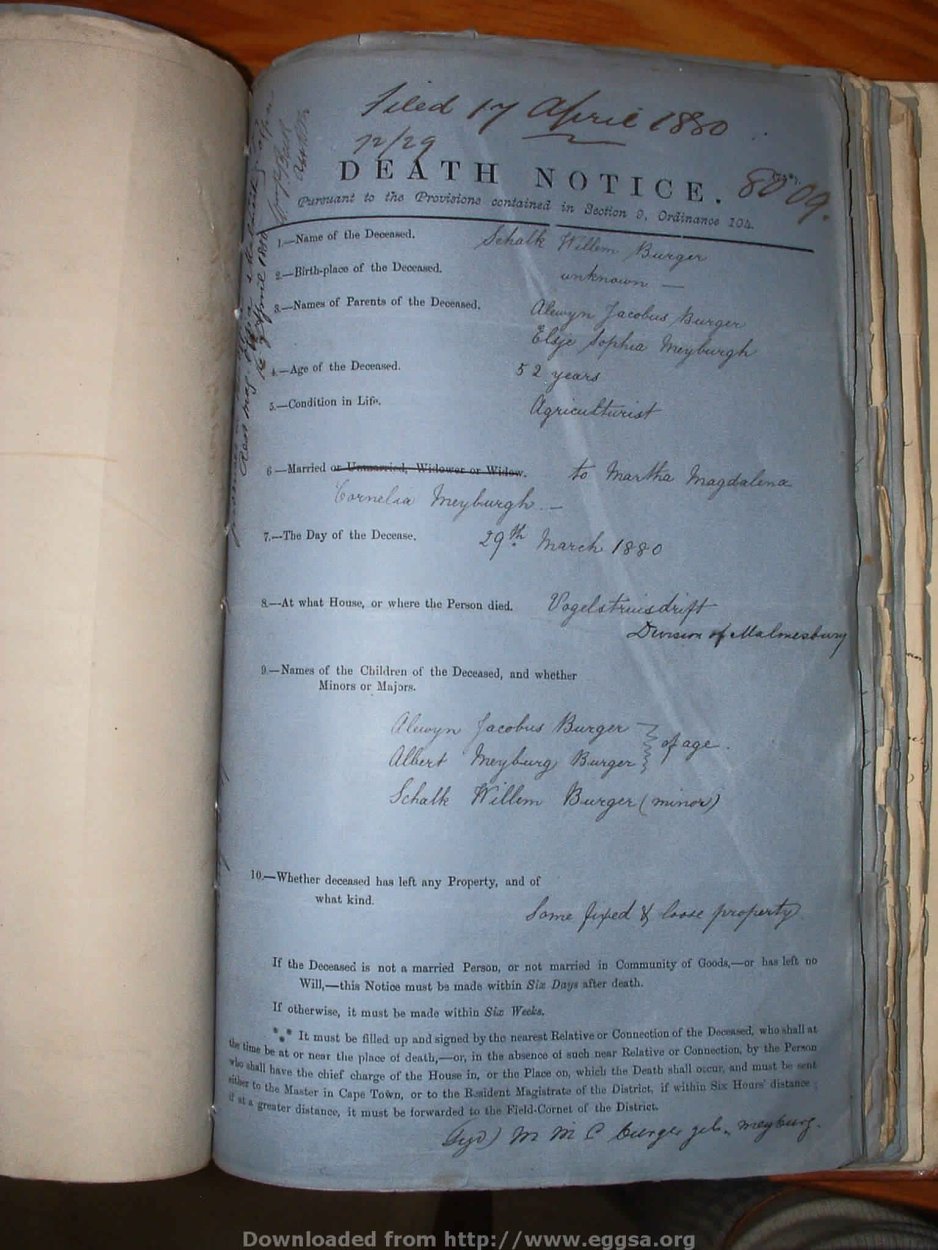 Filed 17 April 1880
12/29
DEATH NOTICE.
8009.
Pursuant to the Provisions contained in Section 9, Ordinance 104.
1.—Name of the Deceased. Schalk Willem Burger
2.—Birth-place of the Deceased. unknown —
3.—Names of Parents of the Deceased. Alewyn Jacobus Burger
Elsje Sophia Meyburgh
4.—Age of the Deceased. 52 years
5.—Condition in Life. Agriculturist
6.—Married or Unmarried, Widower or Widow. to Martha Magdalena
Cornelia Meyburgh.—
7.—The Day of the Decease. 29th March 1880
8.—At what House, or where the Person died. Vogelstruisdrift
Division of Malmesbury
9.—Names of the Children of the Deceased, and whether
Minors or Majors.
Alewyn Jacobus Burger
of age.
Albert Meyburg Burger
Schalk Willem Burger (minor)
10.—Whether deceased has left any Property, and of
what kind.
Some fixed & loose property
If the Deceased is not a married Person, or not married in Community of Goods,—or has left no
Will,—this Notice must be made within Six Days after death.
If otherwise, it must be made within Six Weeks.
*** It must be filled up and signed by the nearest Relative or Connection of the Deceased, who shall at
the time be at or near the place of death,—or, in the absence of such near Relative or Connection, by the Person
who shall have the chief charge of the House in, or the Place on, which the Death shall occur, and must be sent
either to the Master in Cape Town, or to the Resident Magistrate of the District, if within Six Hours' distance;
if at a greater distance, it must be forwarded to the Field-Cornet of the District.
M M C Burger geb. Meyburg.
April 1880
Downloaded from http://www.eggsa.org